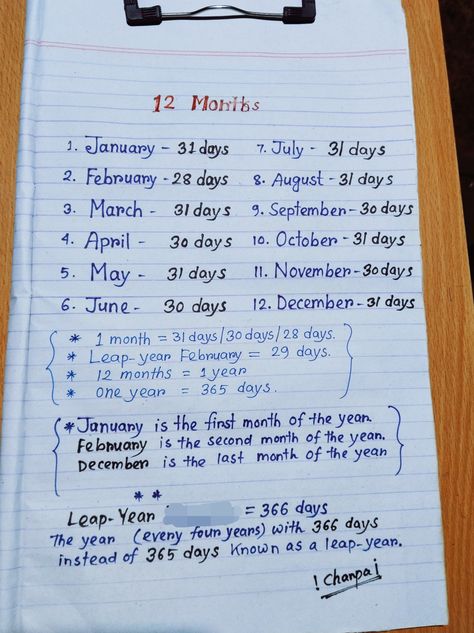 12 Months
1. January - 31 days
2. February - 28 days
3. March - 31 days
4. April - 30 days
5. May - 31 days
6. June - 30 days
7. July - 31 days
8. August - 31 days
9. September - 30 days
10. October - 31 days
11. November - 30 days
12. December - 31 days
* 1 month = 31 days/30 days/28 days.
* Leap-year February = 29 days.
* 12 months = 1 year
* one year = 365 days.
* January is the first month of the year.
February is the second month of the year.
December is the last month of the year
* *
Leap-Year = 366 days
The year (every four years) with 366 days
instead of 365 days Known as a leap-year.
! Chanpa !